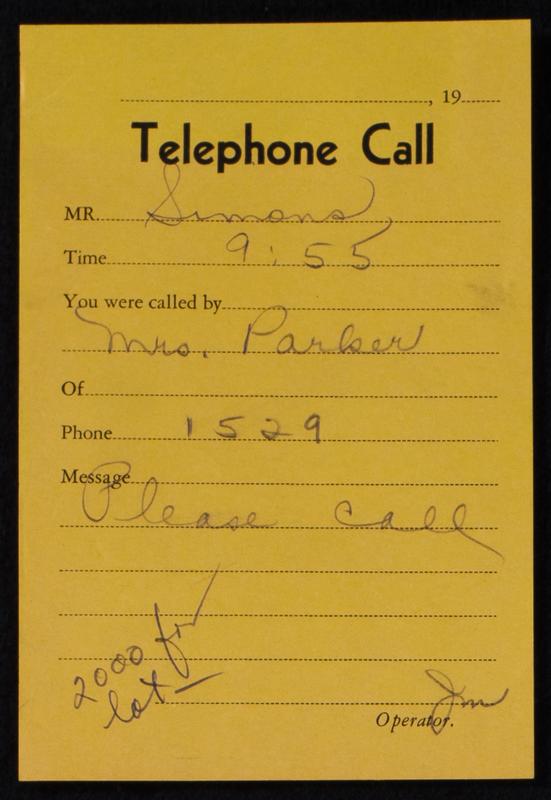 , 19
Telephone Call
MR. Simons
Time 9:55
You were called by
Mrs. Parker
Of
Phone 1529
Message
Please call
2000 for
lot —
Jm
Operator.